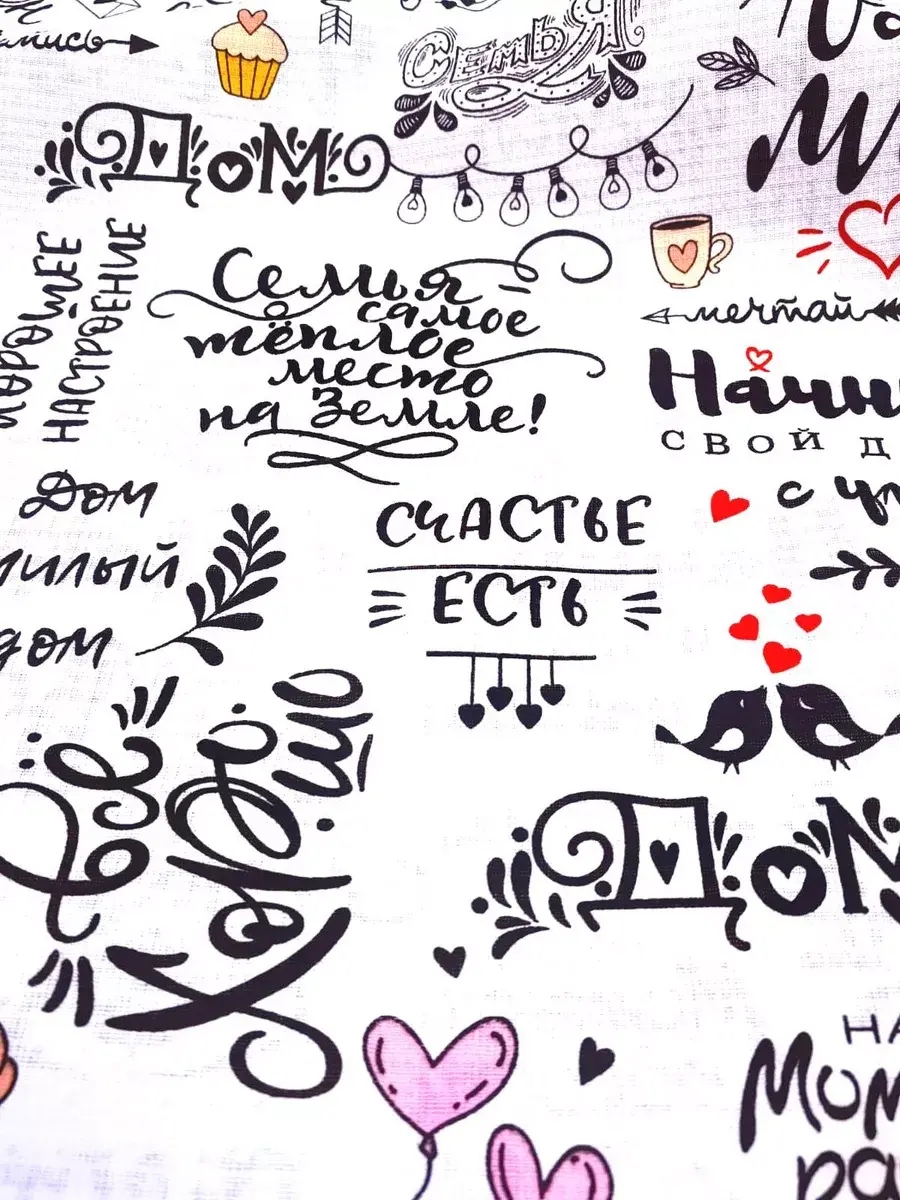 Семья
Дом
ХОРОШЕЕ
НАСТРОЕНИЕ
Семья –
самое
тёплое
место
на Земле!
мечтай
Начни
СВОЙ Д
с ул
Дом
милый
дом
СЧАСТЬЕ
ЕСТЬ
Всё
Хорошо
Дом
НА
Мом
ра